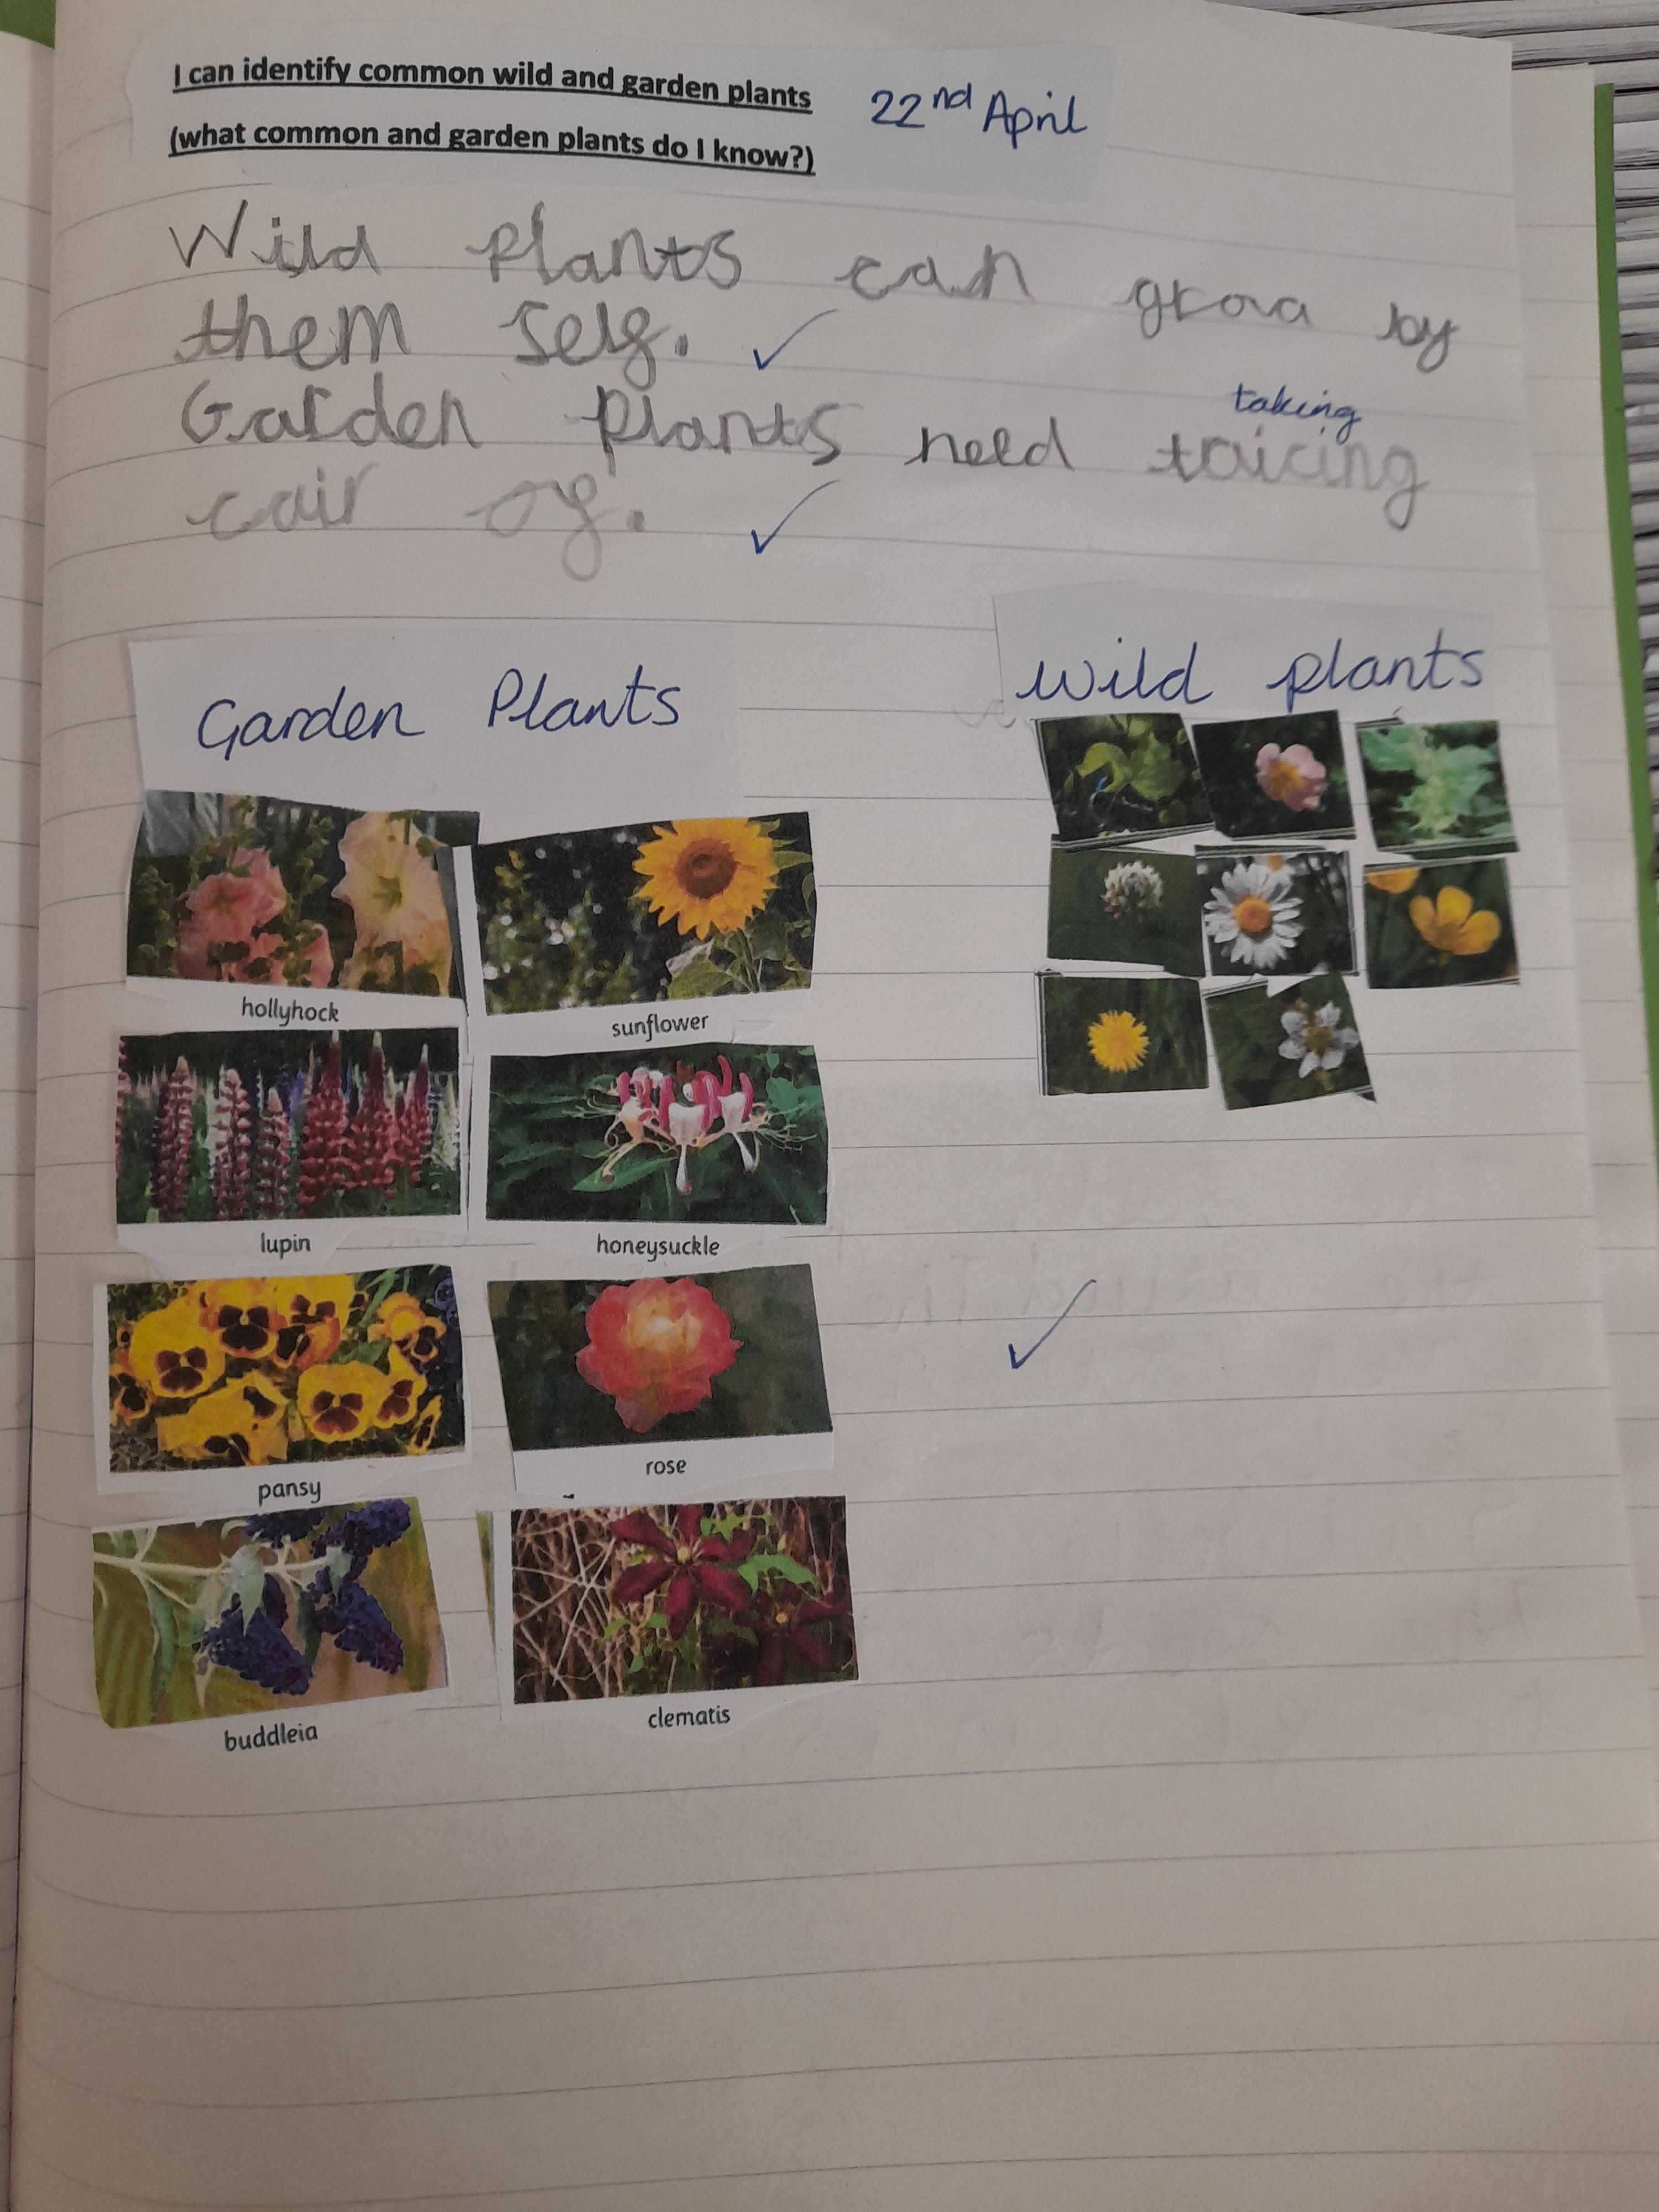 I can identify common wild and garden plants
(what common and garden plants do I know?)
22nd April
Wild plants can grow by
them self.
taking
Garden plants need taicing
cair of.
Garden Plants
wild plants
hollyhock
sunflower
lupin
honeysuckle
pansy
rose
buddleia
clematis